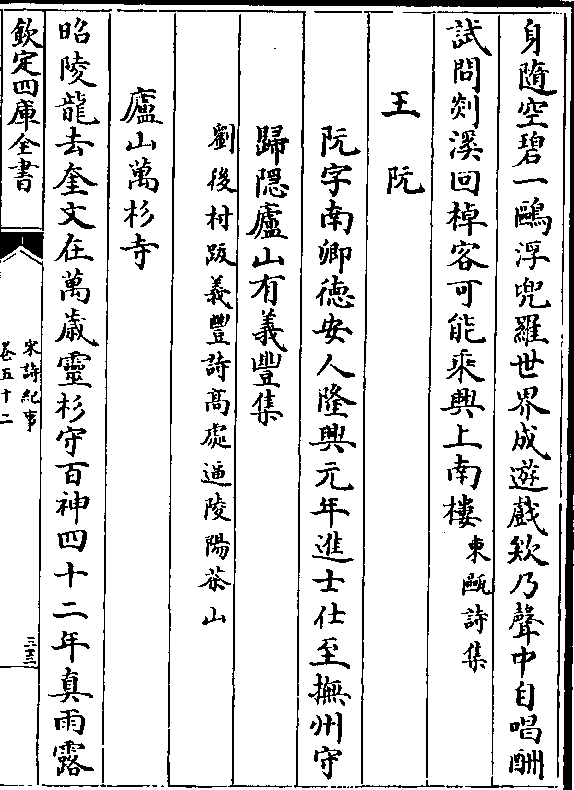 身隨空碧一鷗浮兜羅世界成遊戲欸乃聲中自唱酬
試問剡溪回棹客可能乘興上南樓東甌詩集
王阮
阮字南卿德安人隆興元年進士仕至撫州守
歸隱廬山有義豐集
劉後村跋義豐詩髙處逼陵陽茶山
廬山萬杉寺
昭陵龍去奎文在萬歲靈杉守百神四十二年真雨露
欽定四庫全書
宋詩紀事
卷五十二
三三